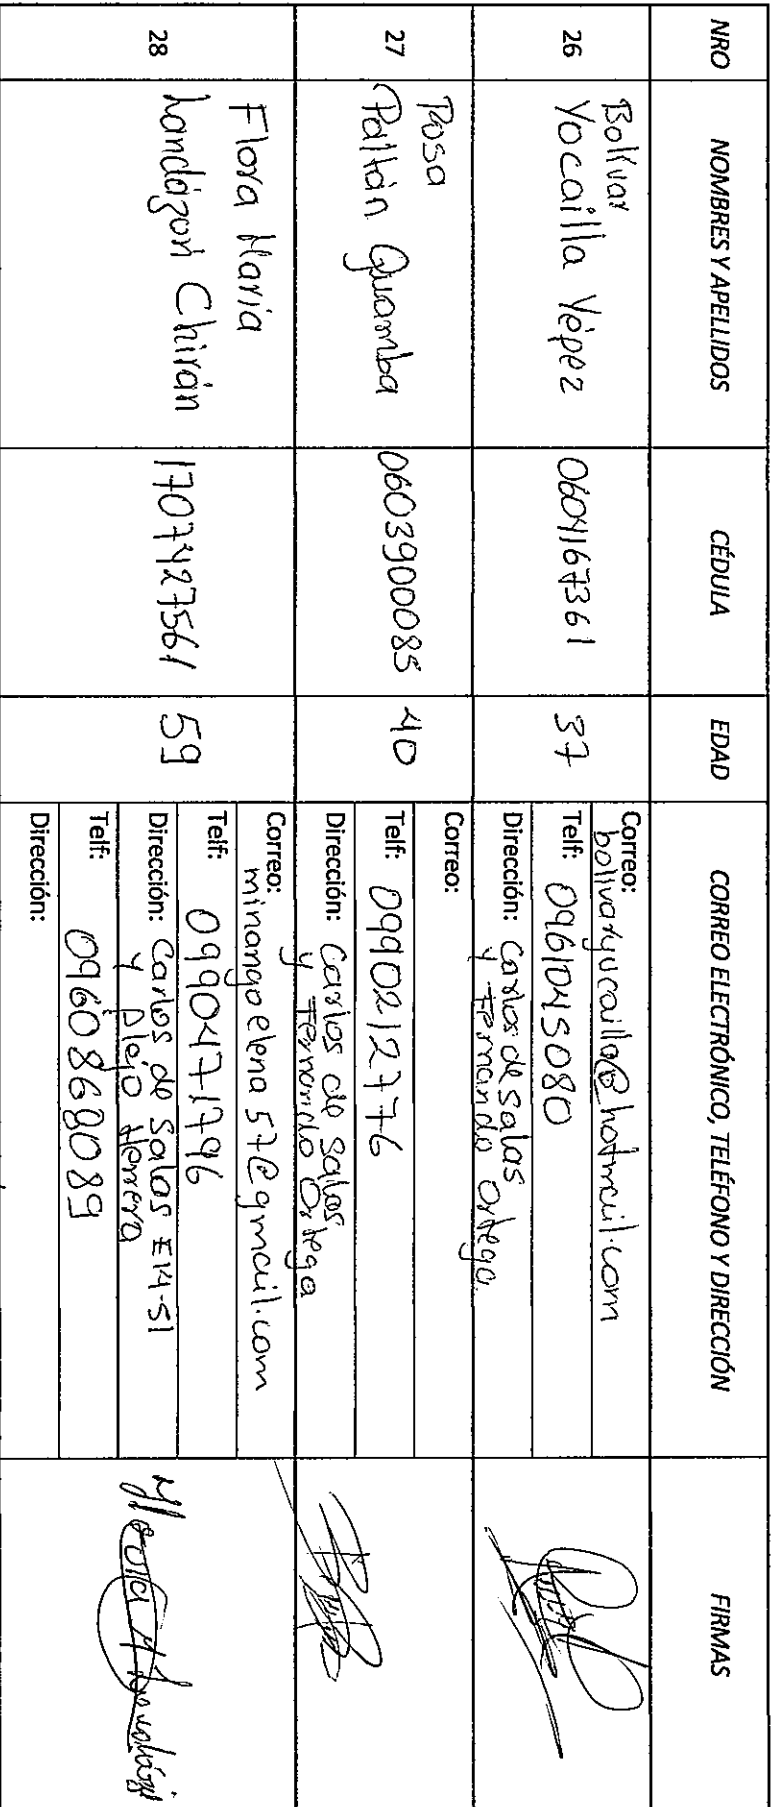 NRO NOMBRES Y APELLIDOS CÉDULA EDAD CORREO ELECTRÓNICO, TELÉFONO Y DIRECCIÓN FIRMAS
26
Bolívar
Yocailla Yépez
0604167361
37
Correo: bolivaryucailla@hotmail.com
Telf: 0961045080
Dirección: Carlos de Salas
y Fernando Ortega.
27
Rosa
Paltán Guamba
0603900085
40
Correo:
Telf: 0990212776
Dirección: Carlos de Salas
y Fernando Ortega
28
Flora María
Landázuri Chirán
1707427561
59
Correo: minangoelena57@gmail.com
Telf: 0990471796
Dirección: Carlos de Salas E14-51
y Alejo Herrera
Telf: 0960868089
Dirección: